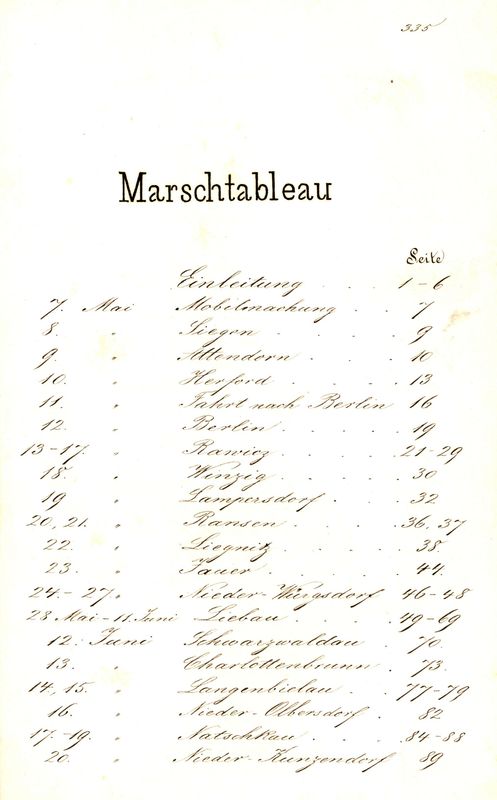 335
Marschtableau
Seite
Einleitung . . . 1-6
7. Mai Mobilmachung . . 7
8. " Siegen . . . . 9
9. " Attendorn . . . . 10
10. " Herford . . . . 13
11. " Fahrt nach Berlin 16
12. " Berlin . . . . 19
13-17. " Rawicz . . . . 21-29
18. " Winzig . . . . 30
19 " Lampersdorf . . . 32
20, 21. " Ransen . . . . 36, 37
22. " Liegnitz . . . . 38
23. " Jauer . . . . 44
24-27. " Nieder-Würgsdorf 46-48
28 Mai-11. Juni Liebau . . . 49-69
12. Juni Schwarzwaldau . . 70
13. " Charlottenbrunn . . 73
14, 15. " Langenbielau . . . 77-79
16. " Nieder-Olbersdorf . . 82
17.-19. " Natschkau . . . . 84-88
20. " Nieder-Kunzendorf 89